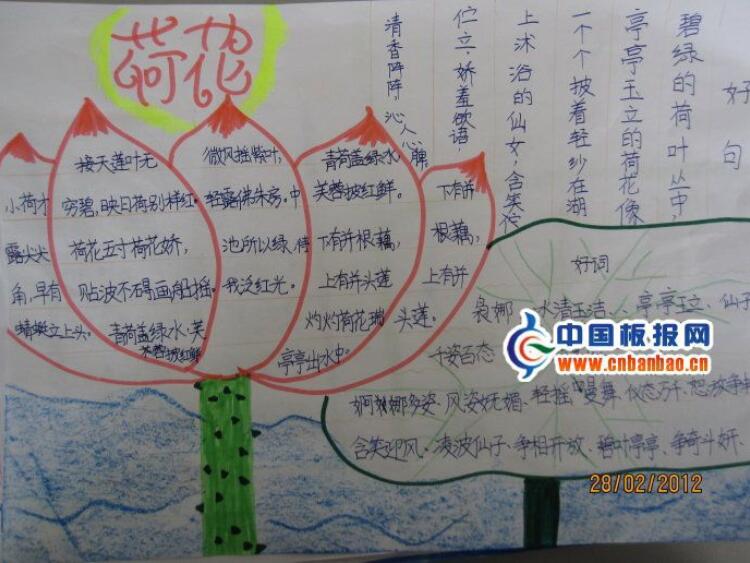 荷花
好句
碧绿的荷叶丛中,
亭亭玉立的荷花像
一个个披着轻纱在湖
上沐浴的仙女,含笑
伫立,娇羞欲语
清香阵阵,沁人心脾
小荷才
露尖尖
角,早有
蜻蜓立上头。
接天莲叶无
穷碧,映日荷别样红。
荷花五寸荷花娇,
贴波不碍画船摇。
青荷盖绿水,芙
蓉披红鲜
微风摇紫叶,
轻露佛朱房。中
池所以绿,待
我泛红光。
青荷盖绿水
芙蓉披红鲜。
下有并根藕,
上有并头莲
灼灼荷花瑞
亭亭出水中。
下有并
根藕,
上有并
头莲。
好词
袅娜、水清玉洁、亭亭玉立、仙子
千姿百态
婀娜多姿、风姿妩媚、轻摇曼舞、仪态万千、怒放争
含笑迎风、凌波仙子、争相开放、碧叶亭亭、争奇斗妍、
中国板报网
www.cnbanbao.cn
28/02/2012